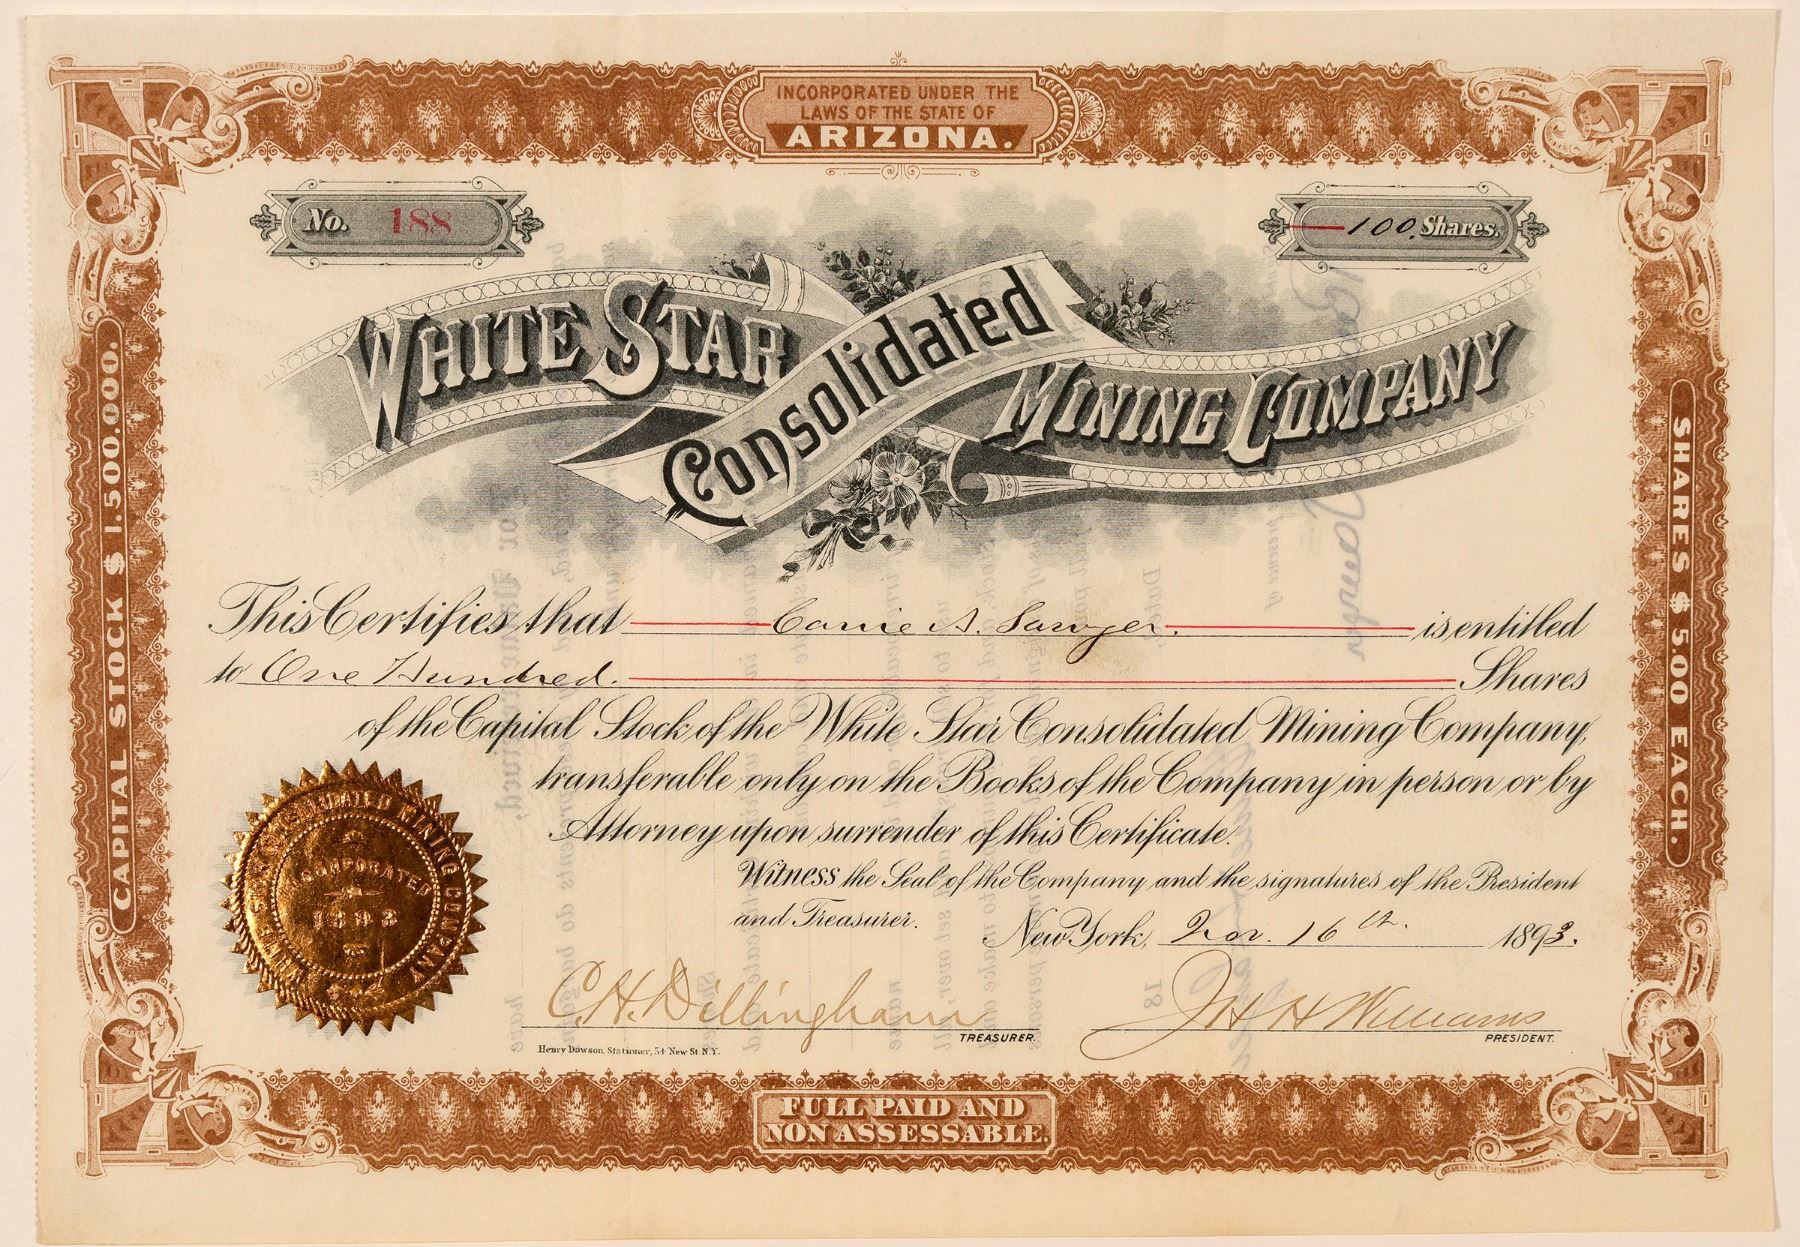 INCORPORATED UNDER THE
LAWS OF THE STATE OF
ARIZONA.
No. 188
100. Shares.
WHITE STAR
Consolidated
MINING COMPANY
CAPITAL STOCK $ 1.500.000.
SHARES $ 5.00 EACH.
This Certifies that Carrie A. Sawyer. is entitled
to One Hundred. Shares
of the Capital Stock of the White Star Consolidated Mining Company,
transferable only on the Books of the Company in person or by
Attorney upon surrender of this Certificate.
Witness the Seal of the Company and the signatures of the President
and Treasurer.
New York, Nov. 16th. 1893.
CONSOLIDATED MINING COMPANY
INCORPORATED
1893
C. H. Dillingham
TREASURER.
H Williams
PRESIDENT.
Henry Dawson Stationer, 54 New St. N.Y.
FULL PAID AND
NON ASSESSABLE.